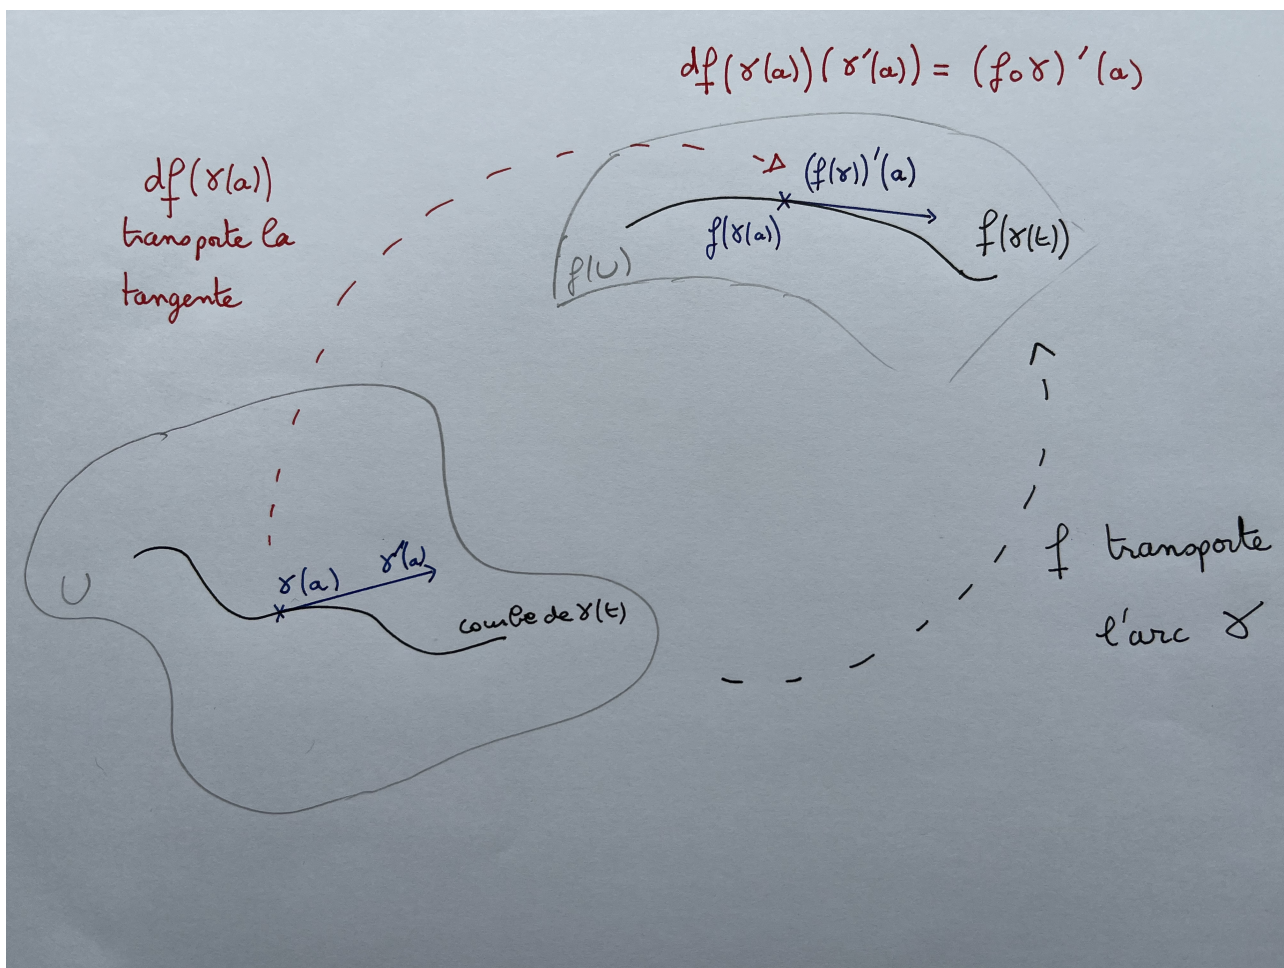 df(γ(a))(γ'(a)) = (f∘γ)'(a)
df(γ(a))
transporte la
tangente
(f(γ))'(a)
f(γ(a))
f(γ(t))
f(U)
U
γ(a)
γ'(a)
courbe de γ(t)
f transporte
l'arc γ